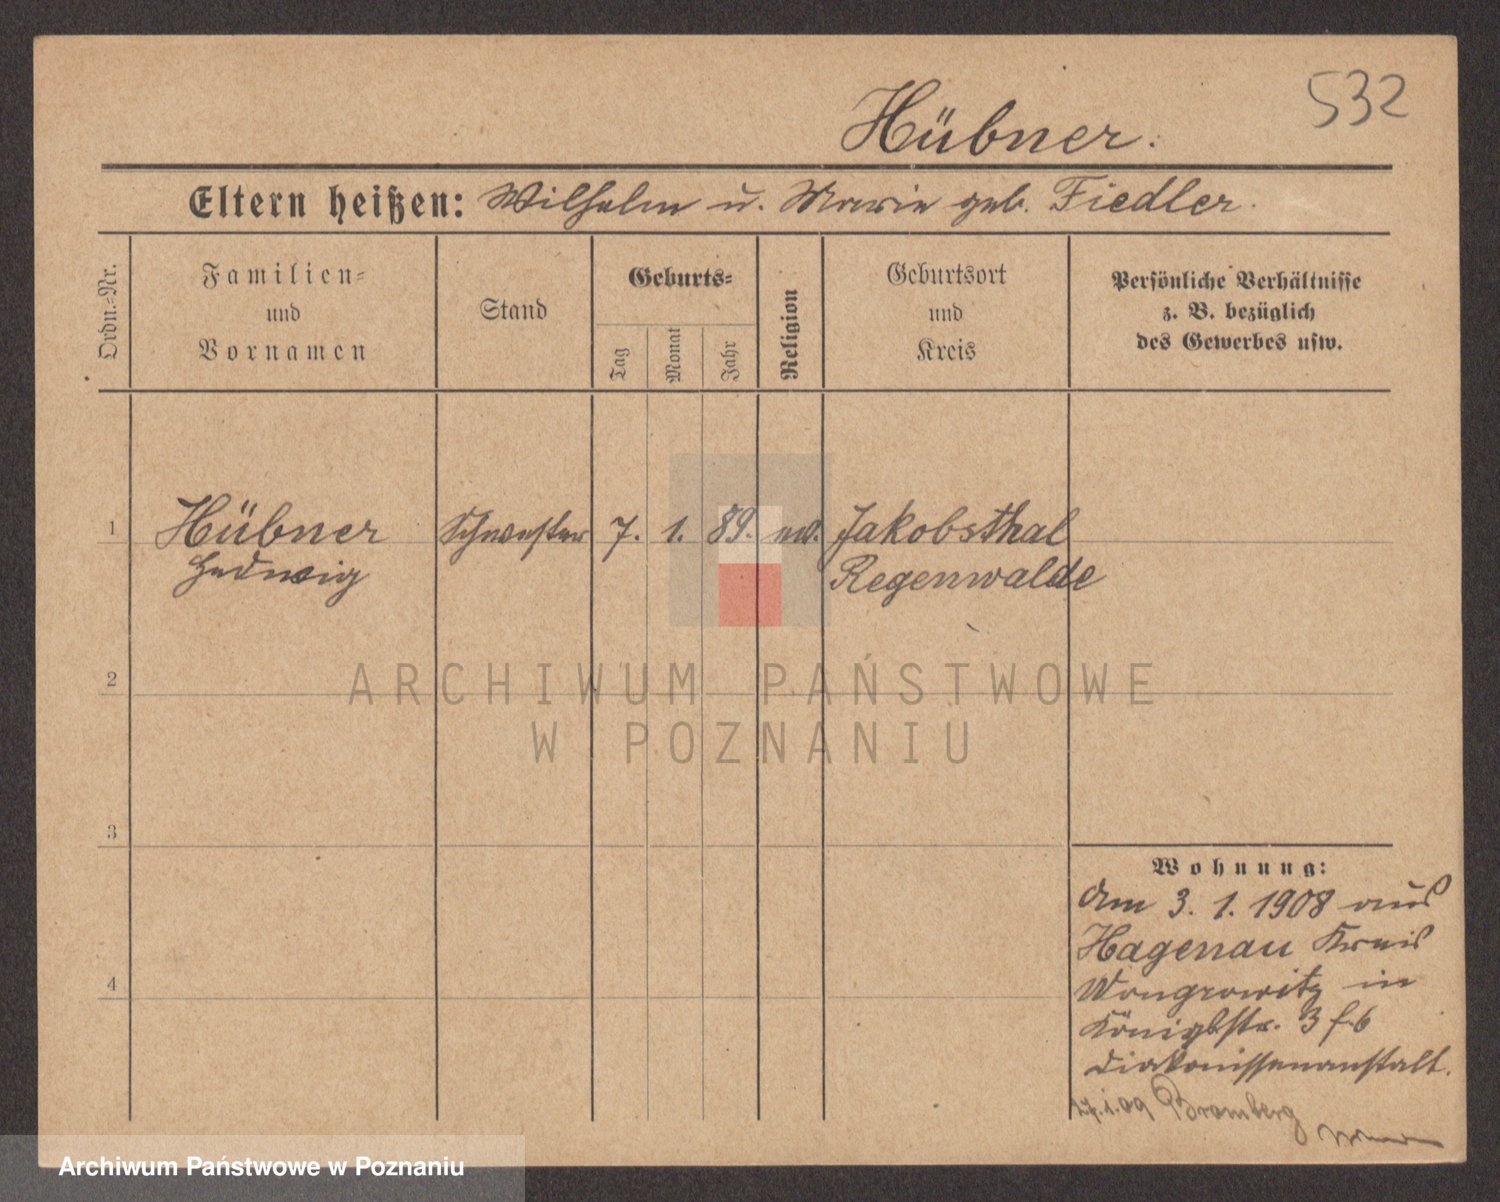 532
Hübner.
Eltern heißen: Wilhelm u. Marie geb. Fiedler.
Ordn.-Nr.
Familien-
und
Vornamen
Stand
Geburts-
Tag
Monat
Jahr
Religion
Geburtsort
und
Kreis
Persönliche Verhältnisse
z. B. bezüglich
des Gewerbes usw.
1 Hübner Schwester 7. 1. 89. ev. Jakobsthal
Hedwig Regenwalde
2
ARCHIWUM PAŃSTWOWE
W POZNANIU
3
Wohnung:
Am 3. 1. 1908 aus
Hagenau Kreis
Wongrowitz in
4
Königstr. 3
Diakonissenanstalt.
1.09 Bromberg
Archiwum Państwowe w Poznaniu